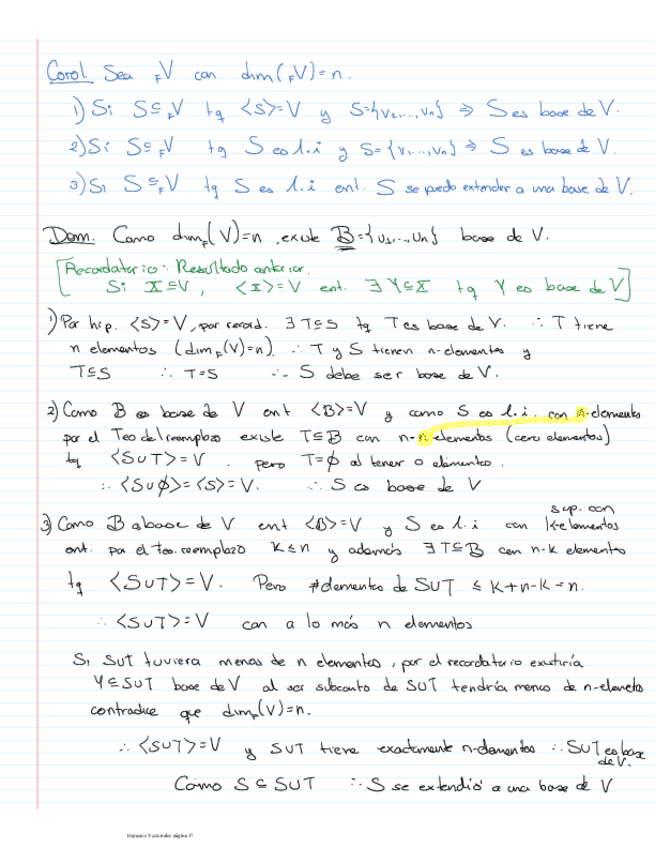 Corol. Sea FV con dim(FV)=n.
1) Si S⊆FV tq <S>=V y S={v1,...,vn} ⇒ S es base de V.
2) Si S⊆FV tq S es l.i y S={v1,...,vn} ⇒ S es base de V.
3) Si S⊆FV tq S es l.i ent. S se puede extender a una base de V.
Dem. Como dimF(V)=n, existe B={u1,...,un} base de V.
[Recordatorio: Resultado anterior.
Si X⊆V, <X>=V ent. ∃ Y⊆X tq Y es base de V]
1) Por hip. <S>=V, por record. ∃ T⊆S tq T es base de V. ∴ T tiene
n elementos (dimF(V)=n). ∴ T y S tienen n-elementos y
T⊆S ∴ T=S ∴ S debe ser base de V.
2) Como B es base de V ent <B>=V y como S es l.i. con n-elementos
por el Teo del reemplazo existe T⊆B con n-n elementos (cero elementos)
tq <S∪T>=V. pero T=∅ al tener 0 elementos.
∴ <S∪∅>=<S>=V. ∴ S es base de V
sup. con
3) Como B a base de V ent <B>=V y S es l.i con k-elementos
ent. por el teo. reemplazo k≤n y además ∃ T⊆B con n-k elementos
tq <S∪T>=V. Pero #elementos de S∪T ≤ k+n-k=n.
∴ <S∪T>=V con a lo más n elementos
Si S∪T tuviera menos de n elementos, por el recordatorio existiría
Y⊆S∪T base de V al ser subconto de S∪T tendría menos de n-elemeto
contradice que dimF(V)=n.
∴ <S∪T>=V y S∪T tiene exactamente n-elementos ∴ S∪T es base
de V.
Como S⊆S∪T ∴ S se extendió a una base de V
Espacios Vectoriales página 17